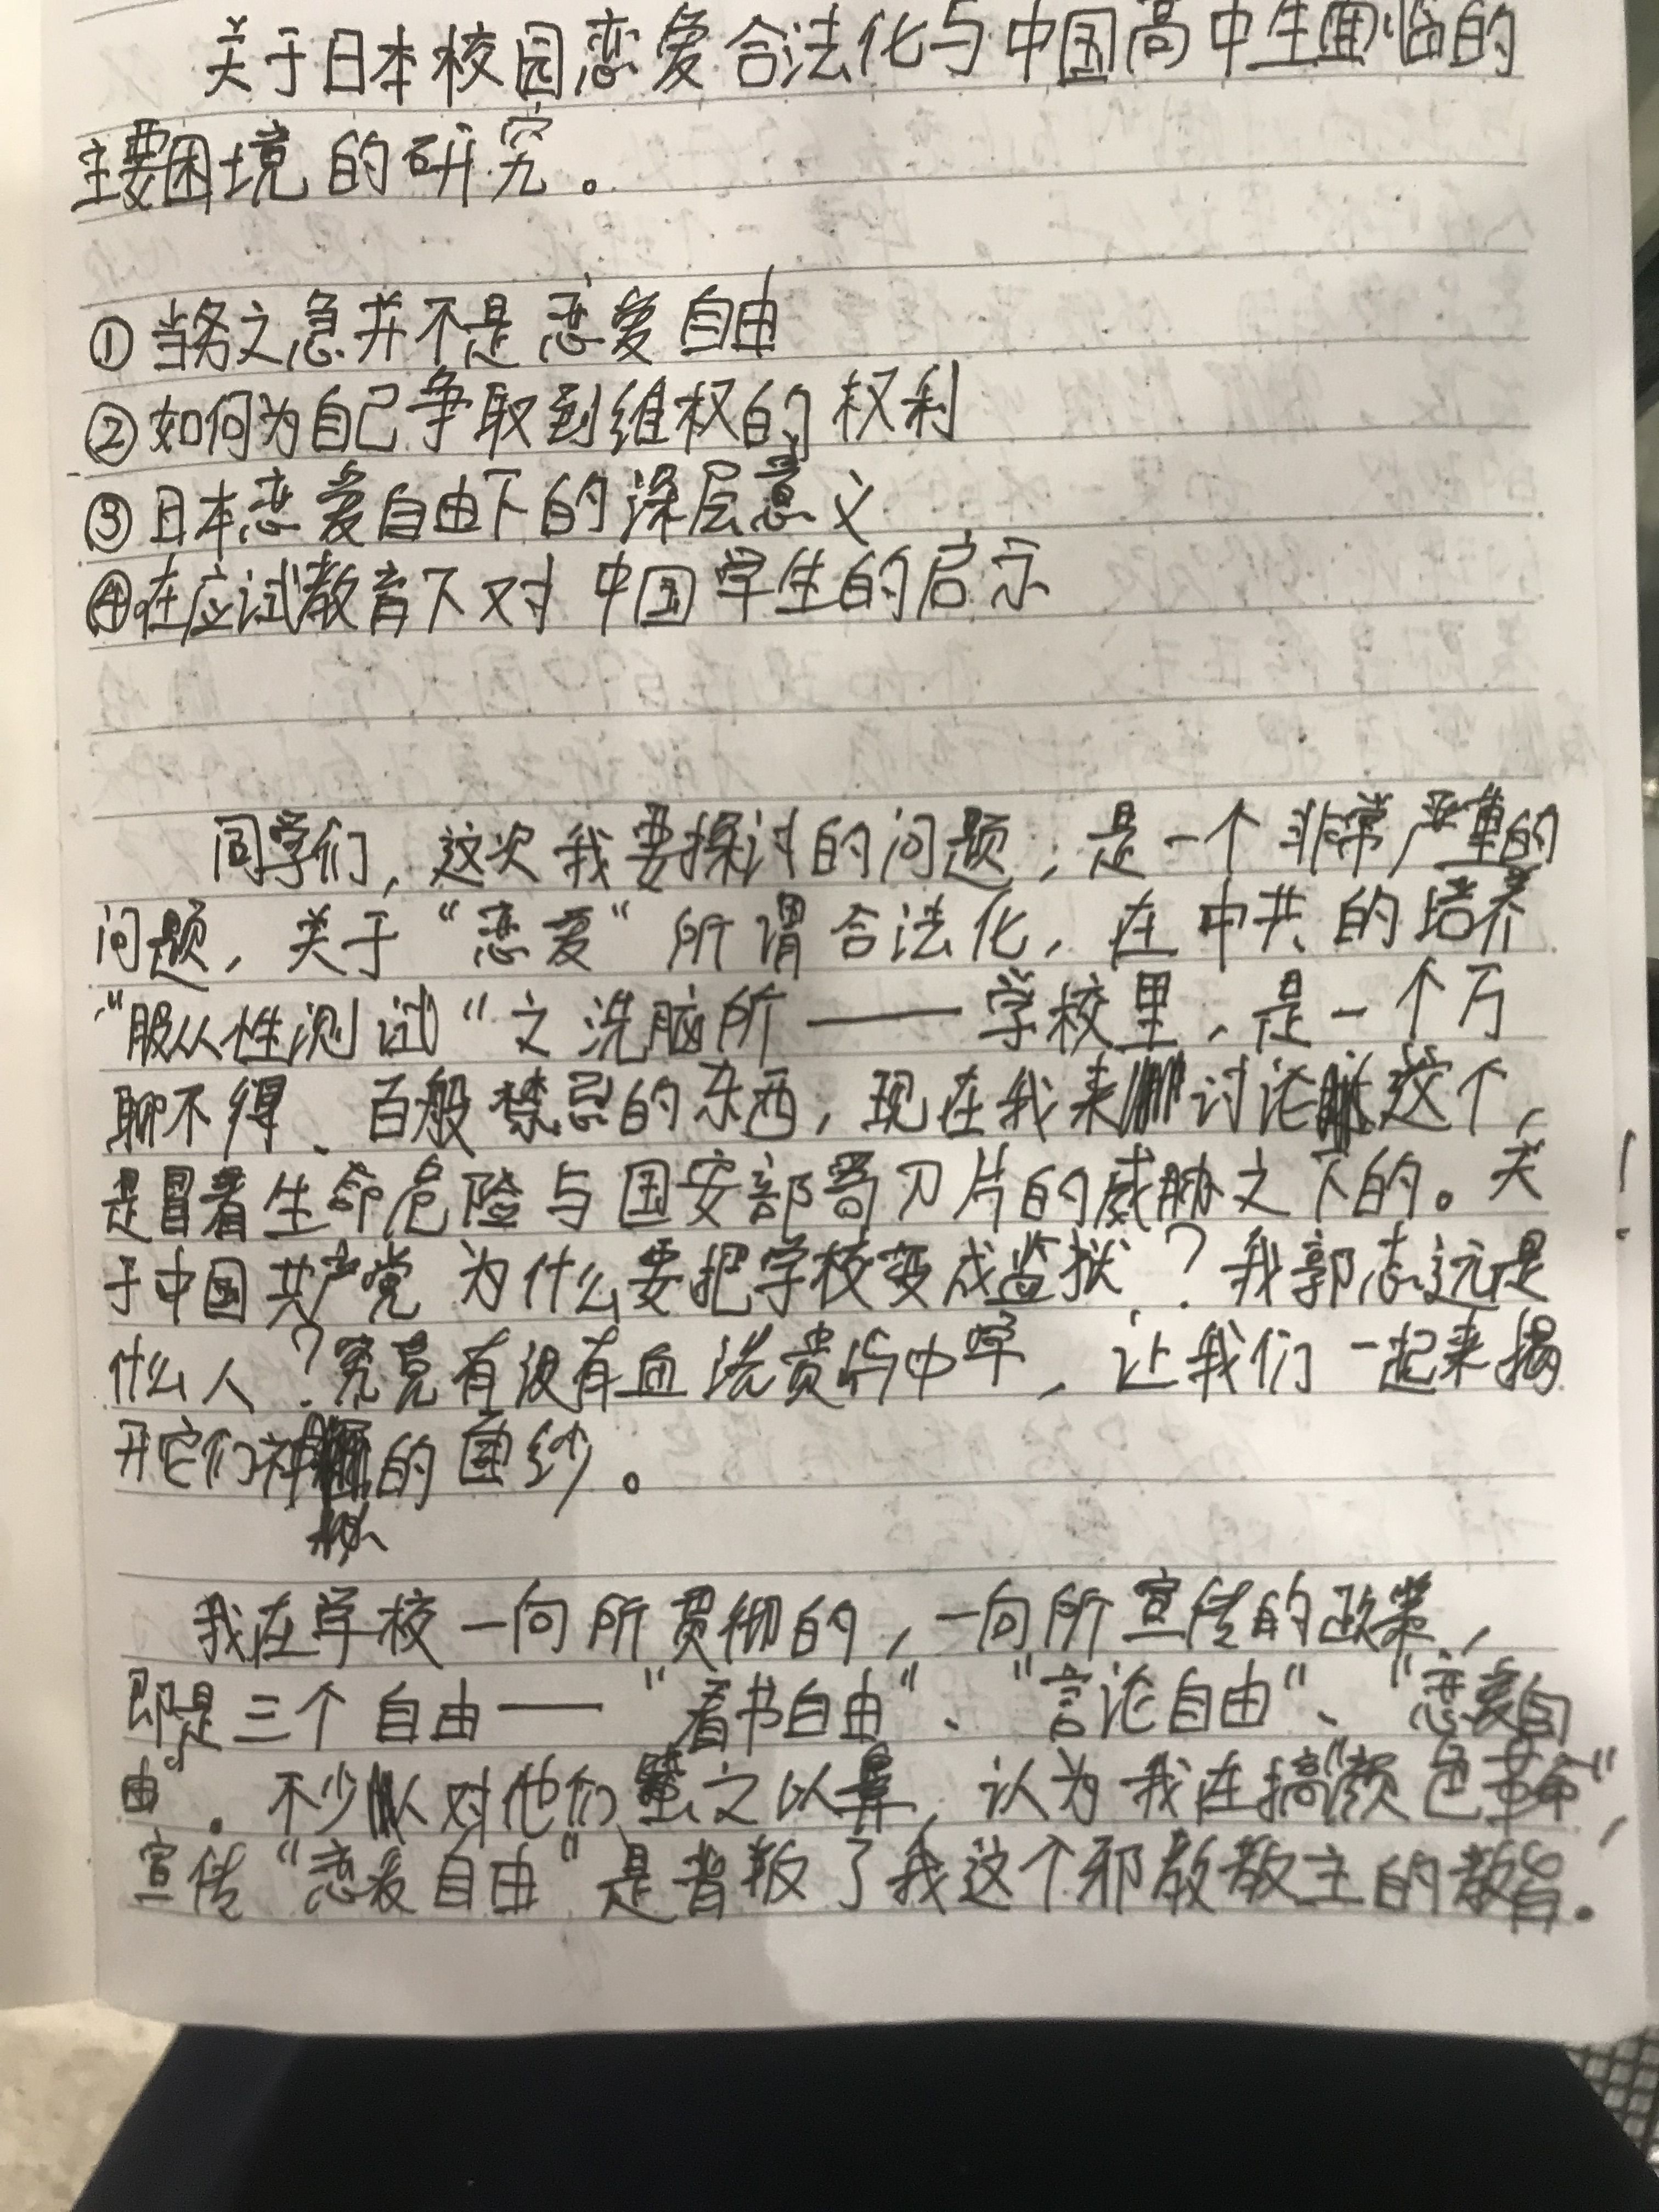 关于日本校园恋爱合法化与中国高中生面临的
主要困境的研究。
①当务之急并不是恋爱自由
②如何为自己争取到维权的权利
③日本恋爱自由下的深层意义
④在应试教育下对中国学生的启示
同学们,这次我要探讨的问题,是一个非常严重的
问题,关于“恋爱“所谓合法化,在中共的培养
“服从性测试“之洗脑所——学校里,是一个万
聊不得、百般禁忌的东西,现在我来讨论这个,
是冒着生命危险与国安部寄刀片的威胁之下的。关
于中国共产党为什么要把学校变成监狱?我郭志远是
什么人?究竟有没有血洗贵屿中学,让我们一起来揭
开它们神秘的面纱。
我在学校一向所贯彻的,一向所宣传的政策,
即是三个自由——“看书自由“、“言论自由“、“恋爱自
由“。不少人对他们嗤之以鼻,认为我在搞“颜色革命“,
宣传“恋爱自由“是背叛了我这个邪教教主的教旨。